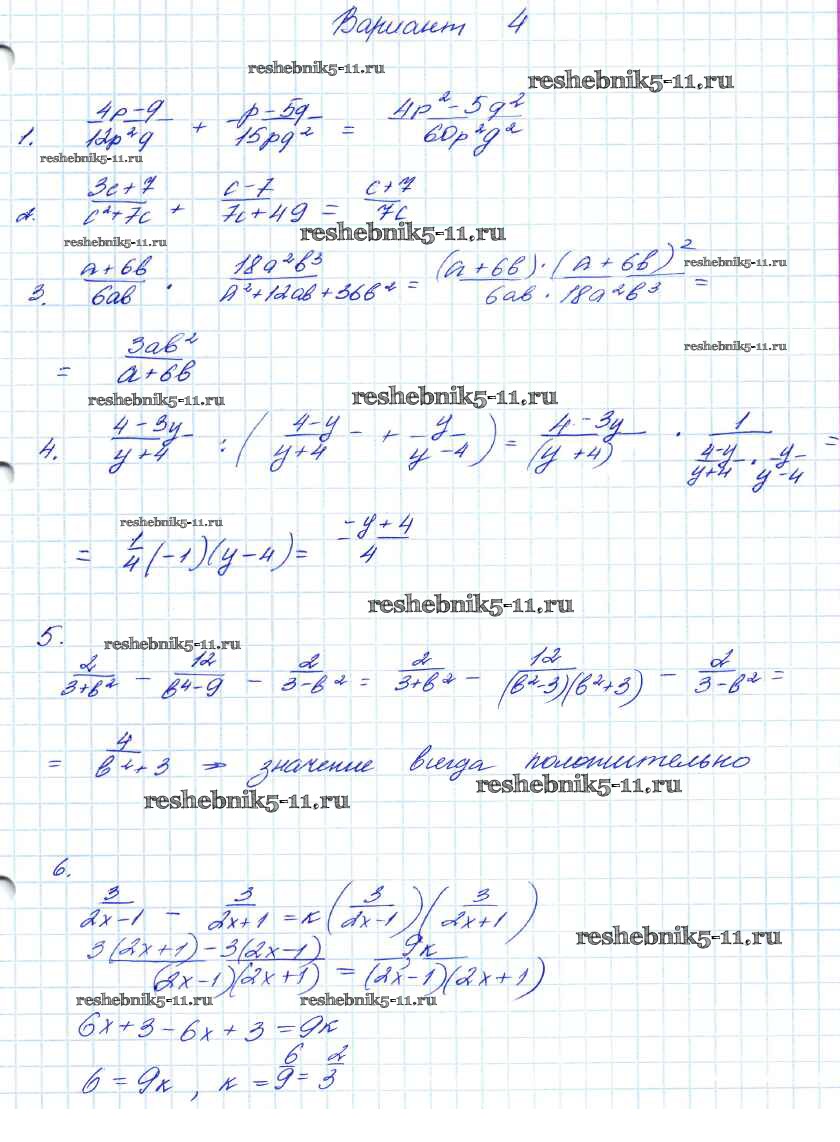 Вариант 4
reshebnik5-11.ru
reshebnik5-11.ru
1. (4p-q)/(12p²q) + (p-5q)/(15pq²) = (4p²-5q²)/(60p²q²)
reshebnik5-11.ru
2. (3c+7)/(c²+7c) + (c-7)/(7c+49) = (c+7)/(7c)
reshebnik5-11.ru
reshebnik5-11.ru
3. (a+6b)/(6ab) · (18a²b³)/(a²+12ab+36b²) = ((a+6b)·(a+6b)²)/(6ab·18a²b³) =
reshebnik5-11.ru
= (3ab²)/(a+6b)
reshebnik5-11.ru
reshebnik5-11.ru
reshebnik5-11.ru
4. (4-3y)/(y+4) : ((4-y)/(y+4) + y/(y-4)) = (4-3y)/(y+4) · 1/((4-y)/(y+4) · y/(y-4)) =
reshebnik5-11.ru
= 1/4 (-1)(y-4) = (-y+4)/4
reshebnik5-11.ru
5.
reshebnik5-11.ru
2/(3+b²) - 12/(b⁴-9) - 2/(3-b²) = 2/(3+b²) - 12/((b²-3)(b²+3)) - 2/(3-b²) =
= 4/(b²+3) ⇒ значение всегда положительно
reshebnik5-11.ru
reshebnik5-11.ru
6.
3/(2x-1) - 3/(2x+1) = k(3/(2x-1))(3/(2x+1))
reshebnik5-11.ru
(3(2x+1)-3(2x-1))/((2x-1)(2x+1)) = 9k/((2x-1)(2x+1))
reshebnik5-11.ru
reshebnik5-11.ru
6x+3-6x+3=9k
6=9k, k=6/9=2/3